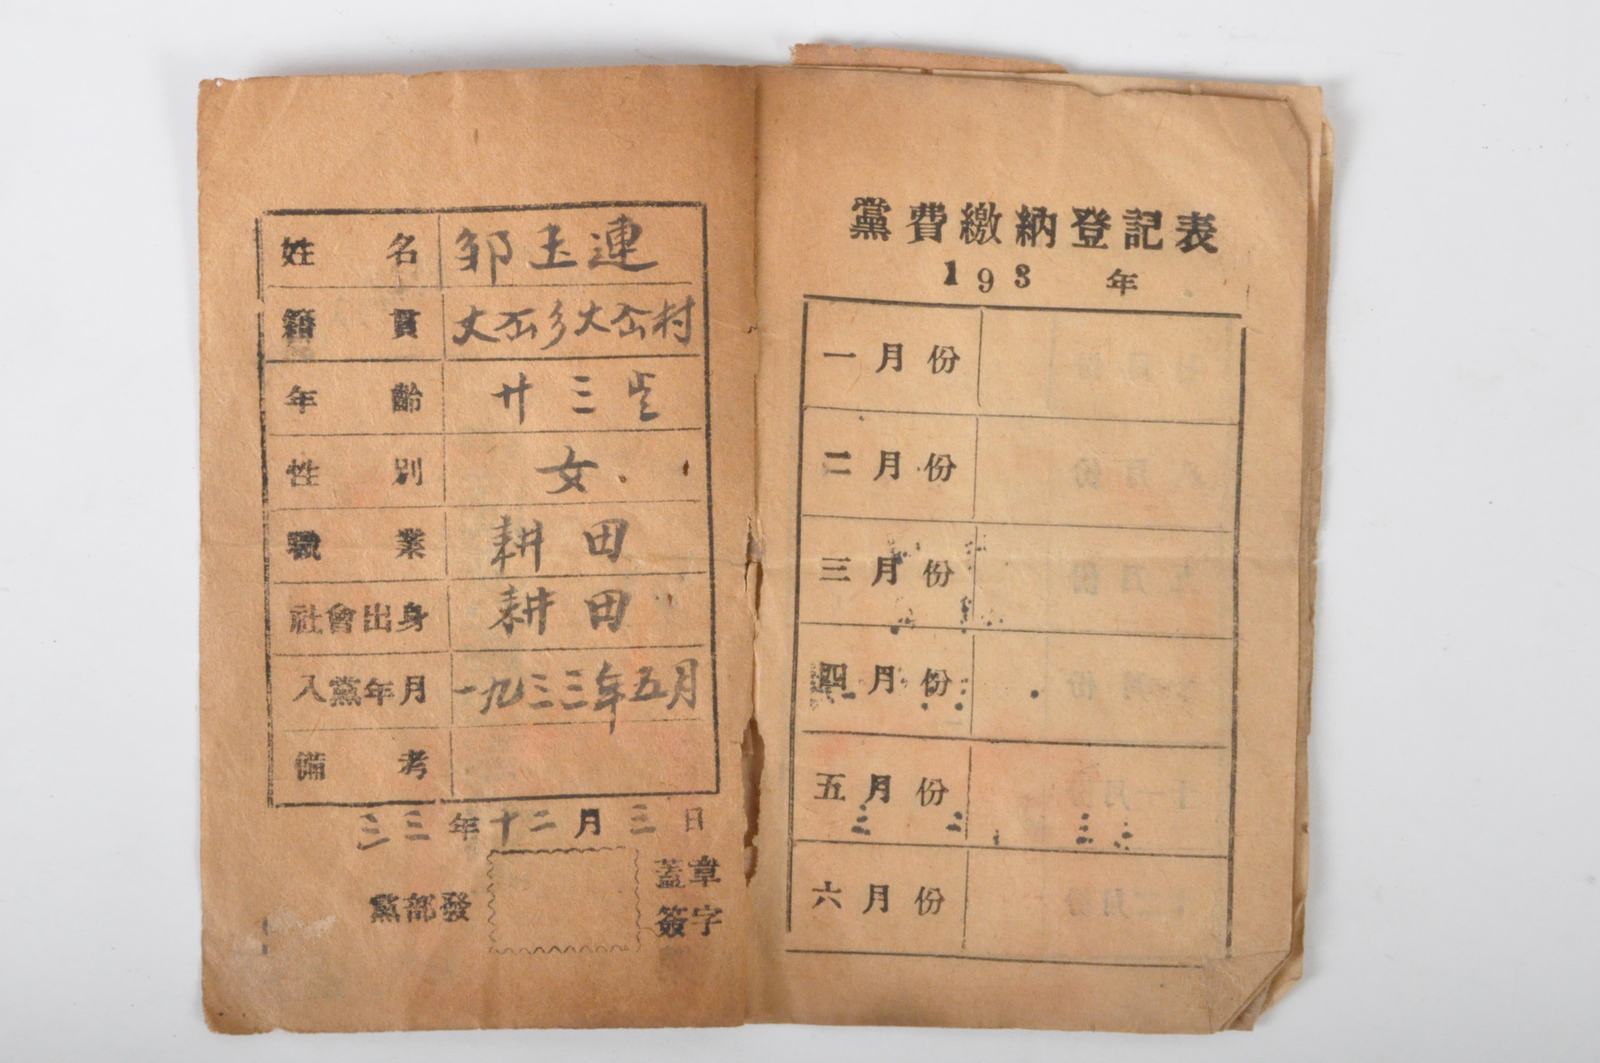 姓名 邹玉連
籍貫 大岙乡大岙村
年齡 廿三岁
性別 女
職業 耕田
社會出身 耕田
入黨年月 一九三三年五月
備考
三三年十二月三日
黨部發
蓋章
簽字
黨費繳納登記表
193 年
一月份
二月份
三月份
四月份
五月份
六月份